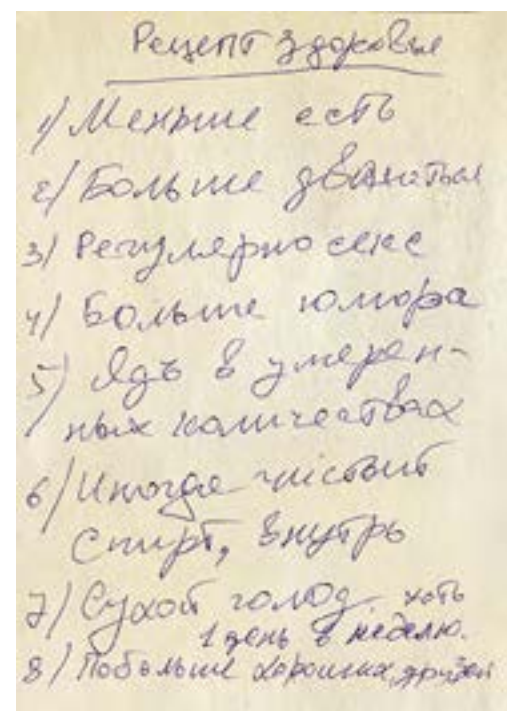 Рецепт здоровья
1/ Меньше есть
2/ Больше двигаться
3/ Регулярно секс
4/ Больше юмора
5/ Ядъ в умерен-
ных количествах
6/ Иногда чистый
спирт, внутрь
7/ Сухой голод, хоть
1 день в неделю.
8/ Побольше хороших друзей